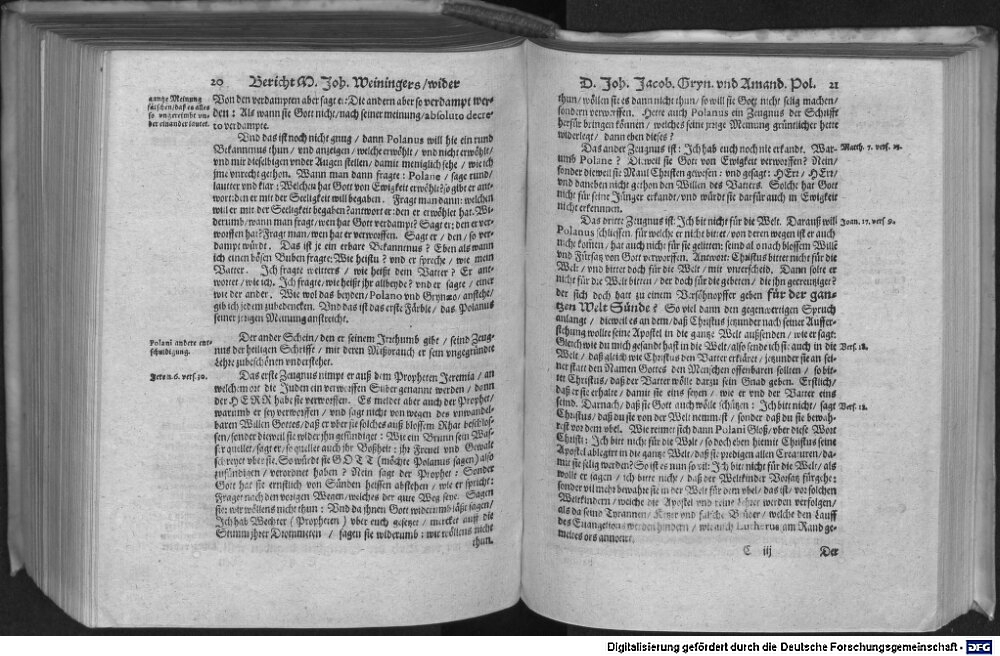 20 Bericht M. Joh. Weiningers/wider
gantze Meinung
fälschen/daß es alles
so vngereimbt vn-
der einander lautet.
Von den verdampten aber sagt er: Die andern aber so verdampt wer-
den: Als wann sie Gott nicht/nach seiner meinung/absoluto decre-
to verdampte.
Vnd das ist noch nicht gnug / dann Polanus will hie ein rund
Bekanntnus thun / vnd anzeigen / welche erwöhlt / vnd nicht erwöhlt/
vnd mit dieselbigen vnder Augen stellen/ damit meniglich sehe / wie ich
jme vnrecht gethon. Wann man dann fragte: Polane / sage rund/
lautter vnd klar: Welchen hat Gott von Ewigkeit erwöhlt? so gibt er ant-
wort: den er mit der Seeligkeit will begaben. Fragt man dann: welchen
will er mit der Seeligkeit begaben? antwort er: den er erwöhlet hat. Wi-
derumb/wann man fragt/wen hat Gott verdampt? Sagt er: den er ver-
worffen hat? Fragt man/wen hat er verworffen. Sagt er / den / so ver-
dampt würdt. Das ist je ein erbare Bekanntnus? Eben als wann
ich einen bösen Buben fragte: Wie heistu? vnd er spreche / wie mein
Vatter. Ich fragte weitters / wie heißt dein Vatter? Er ant-
wortet / wie ich. Ich fragte, wie heißt jhr allbeyde? vnd er sagte / einer
wie der ander. Wie wol das beyden/Polano vnd Grynæo/ansteht/
gib ich jedem zubedencken. Vnd das ist das erste Färble / das Polanus
seiner jrrigen Meinung anstreicht.
Polani andere ent-
schuldigung.
Der ander Schein/den er seinem Irrthumb gibt / seind Zeug-
nus der heiligen Schrifft / mit deren Mißbrauch er sein vngegründte
Lehre zubeschönen vndersteht.
Jerem. 6. vers. 30.
Das erste Zeugnus nimpt er auß dem Propheten Jeremia / an
welchem ort die Juden ein verworffen Silber genannt werden / dann
der HERR habe sie verworffen. Es meldet aber auch der Prophet/
warumb er sey verworffen / vnd sagt nicht von wegen des vnwandel-
baren Willen Gottes/ daß er vber sie solches auß blossem Rhat beschlos-
sen/sonder dieweil sie wider jhn gesündiget: Wie ein Brunn sein Was-
ser quellet/sagt er/so quellet auch jhr Boßheit: jhr Frevel vnd Gewalt
schreyet vber sie. So würdt sie GOTT (möchte Polanus sagen) also
zusündigen / verordnet haben? Nein sagt der Prophet: Sonder
Gott hat sie ernstlich von Sünden heissen abstehen / wie er spricht:
Fraget nach den vorigen Wegen/welches der gute Weg seye. Sagen
sie: wir wöllens nicht thun: Vnd da jhnen Gott widerumb läßt sagen/
Ich hab Wechter (Propheten) vber euch gesetzt / mercket auff die
Stimm jhrer Drommeten / sagen sie widerumb: wir wöllens nicht
thun.
D. Joh. Jacob. Gryn. vnd Amand. Pol. 21
thun/wöllen sie es dann nicht thun/ so will sie Gott nicht selig machen/
sondern verwerffen. Hette auch Polanus ein Zeugnus der Schrifft
herfür bringen können / welches seine jrrige Meinung gründtlicher hette
widerlegt / dann eben dieses?
Das ander Zeugnus ist: Ich hab euch noch nie erkandt. War-
umb Polane? Dieweil sie Gott von Ewigkeit verworffen? Nein/
sonder dieweil sie Maul Christen gewesen: vnd gesagt: HErr / HErr/
vnd daneben nicht gethon den Willen des Vatters. Solche hat Gott
nicht für seine Jünger erkandt/vnd würdt sie darfür auch in Ewigkeit
nicht erkennen.
Matth. 7. vers. 23.
Das dritte Zeugnus ist: Ich bit nicht für die Welt. Darauß will
Polanus schliessen/ für welche er nicht bittet/von deren wegen ist er auch
nicht kommen / hat auch nicht für sie gelitten: sind also nach blossem Willē
vnd Fürsatz von Gott verworffen. Antwort: Christus bittet nicht für die
Welt / vnd bittet doch für die Welt / mit vnterscheid. Dann solte er
nicht für die Welt bitten / der doch für die gebeten / die jhn gecreutziget?
der sich doch hatt zu einem Versöhnopffer geben für der gan-
tzen Welt Sünde? So viel dann den gegenwertigen Spruch
anlangt / dieweil es an dem/ daß Christus jetzunder nach seiner Auffer-
stehung wollte seine Apostel in die gantze Welt außsenden / wie er sagt:
Gleich wie du mich gesandt hast in die Welt/ also sende ich sie auch in die
Welt / daß gleich wie Christus den Vatter erkläret / jetzunder sie an sei-
ner statt den Namen Gottes den Menschen offenbaren sollten / so bit-
tet Christus/daß der Vatter wölle darzu sein Gnad geben. Erstlich/
daß er sie erhalte / damit sie eins seyen / wie er vnd der Vatter eins
seind. Darnach/ daß sie Gott auch wölle schützen: Ich bitt nicht / sagt
Christus/ daß du sie von der Welt nemmest / sonder daß du sie bewah-
rest vor dem vbel. Wie reimet sich dann Polani Gloß/vber diese Wort
Christi: Ich bitt nicht für die Welt/ so doch eben hiemit Christus seine
Apostel ablegirt in die gantze Welt/daß sie predigen allen Creaturen/da-
mit sie selig werden? So ist es nun so vil: Ich bitt nicht für die Welt/ als
wollt er sagen / ich bitte nicht / daß der Weltkinder Vorsatz fürgehe:
sonder vil mehr bewahre sie in der Welt für dem vbel/ das ist/ vor solchen
Weltkindern / welche die Apostel vnd reine Lehrer werden verfolgen/
als da seind Tyrannen/ Ketzer vnd falsche Brüder/ welche den Lauff
des Euangelions werden hindern/ wie auch Lutherus am Rand ge-
meltes orts annotirt.
Joan. 17. vers. 9.
Vers. 18.
Vers. 15.
C iij Der
Digitalisierung gefördert durch die Deutsche Forschungsgemeinschaft - DFG